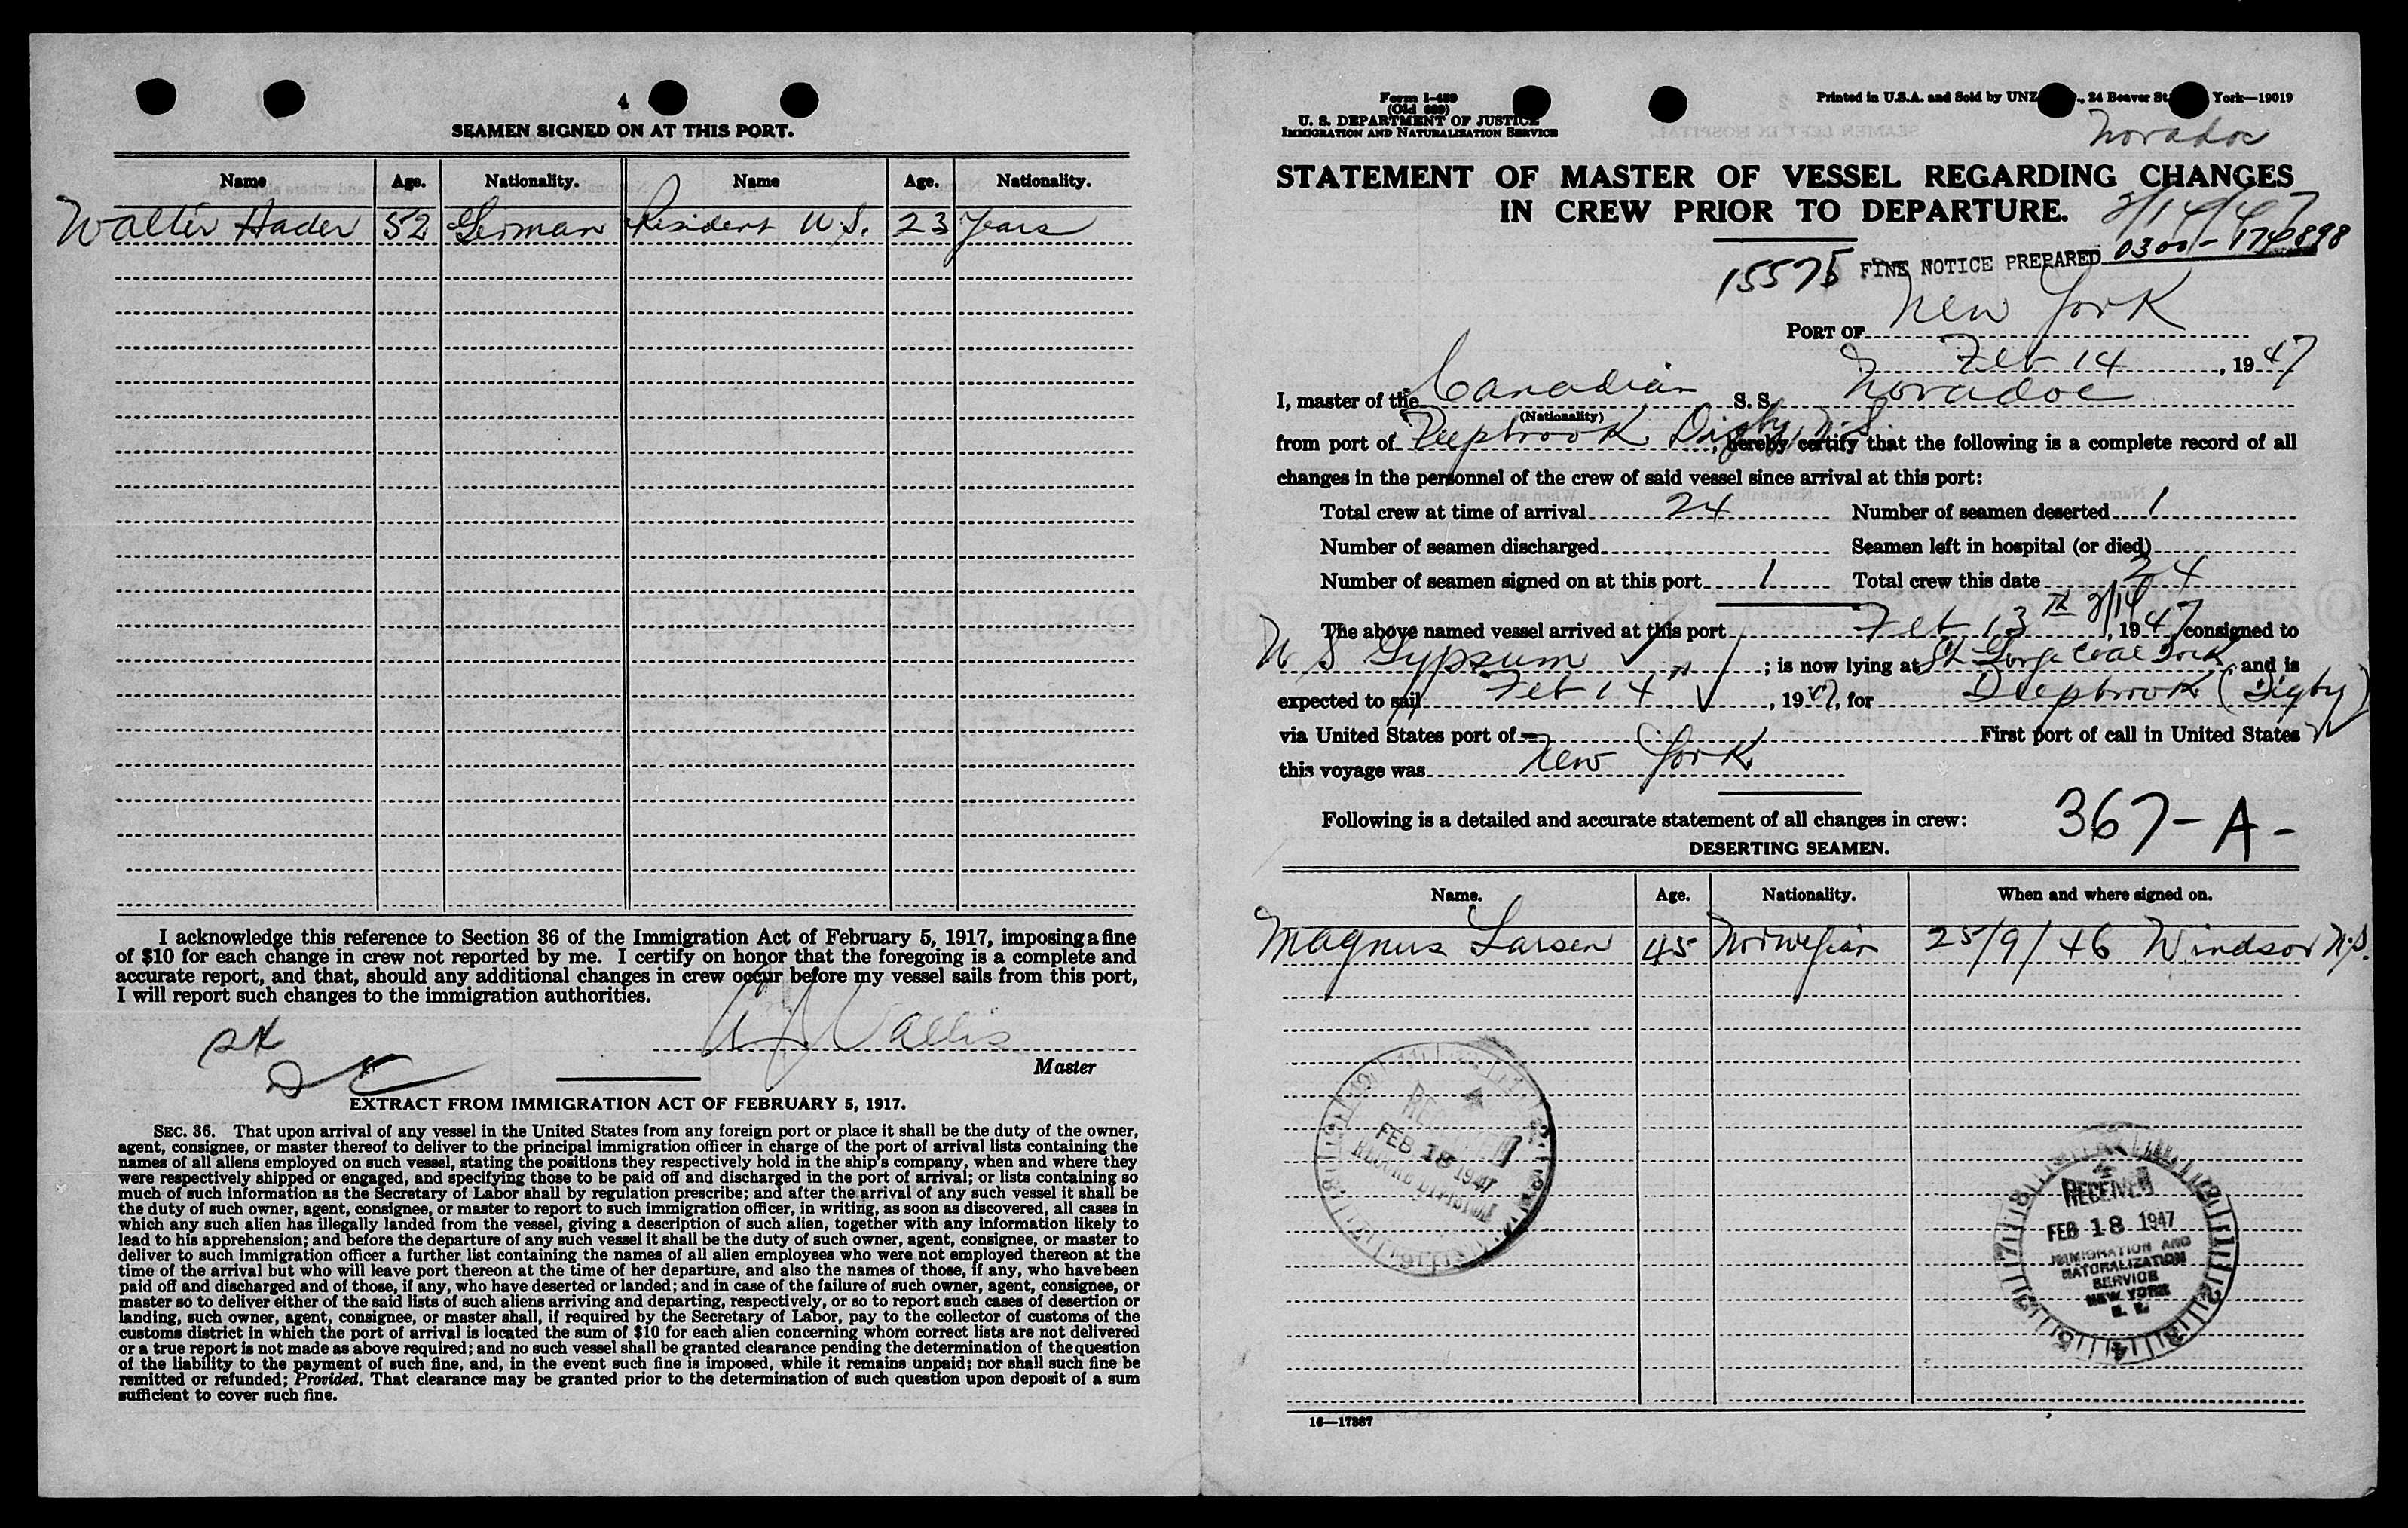 4
SEAMEN SIGNED ON AT THIS PORT.
Name Age. Nationality. Name Age. Nationality.
Walter Hader 52 German Resident U.S. 23 Years
I acknowledge this reference to Section 36 of the Immigration Act of February 5, 1917, imposing a fine
of $10 for each change in crew not reported by me. I certify on honor that the foregoing is a complete and
accurate report, and that, should any additional changes in crew occur before my vessel sails from this port,
I will report such changes to the immigration authorities.
Wallis
Master
EXTRACT FROM IMMIGRATION ACT OF FEBRUARY 5, 1917.
SEC. 36. That upon arrival of any vessel in the United States from any foreign port or place it shall be the duty of the owner,
agent, consignee, or master thereof to deliver to the principal immigration officer in charge of the port of arrival lists containing the
names of all aliens employed on such vessel, stating the positions they respectively hold in the ship's company, when and where they
were respectively shipped or engaged, and specifying those to be paid off and discharged in the port of arrival; or lists containing so
much of such information as the Secretary of Labor shall by regulation prescribe; and after the arrival of any such vessel it shall be
the duty of such owner, agent, consignee, or master to report to such immigration officer, in writing, as soon as discovered, all cases in
which any such alien has illegally landed from the vessel, giving a description of such alien, together with any information likely to
lead to his apprehension; and before the departure of any such vessel it shall be the duty of such owner, agent, consignee, or master to
deliver to such immigration officer a further list containing the names of all alien employees who were not employed thereon at the
time of the arrival but who will leave port thereon at the time of her departure, and also the names of those, if any, who have been
paid off and discharged and of those, if any, who have deserted or landed; and in case of the failure of such owner, agent, consignee, or
master so to deliver either of the said lists of such aliens arriving and departing, respectively, or so to report such cases of desertion or
landing, such owner, agent, consignee, or master shall, if required by the Secretary of Labor, pay to the collector of customs of the
customs district in which the port of arrival is located the sum of $10 for each alien concerning whom correct lists are not delivered
or a true report is not made as above required; and no such vessel shall be granted clearance pending the determination of the question
of the liability to the payment of such fine, and, in the event such fine is imposed, while it remains unpaid; nor shall such fine be
remitted or refunded; Provided, That clearance may be granted prior to the determination of such question upon deposit of a sum
sufficient to cover such fine.
Form I-489
(Old 689)
U. S. DEPARTMENT OF JUSTICE
IMMIGRATION AND NATURALIZATION SERVICE
Printed in U.S.A. and Sold by UNZ ., 24 Beaver St. York—19019
Noradoc
STATEMENT OF MASTER OF VESSEL REGARDING CHANGES
IN CREW PRIOR TO DEPARTURE.
2/14/47
15575 FINE NOTICE PREPARED 0300-174898
PORT OF New York
Feb 14, 1947
I, master of the Canadian S. S. Noradoc
(Nationality)
from port of Deepbrook Digby N.S., hereby certify that the following is a complete record of all
changes in the personnel of the crew of said vessel since arrival at this port:
Total crew at time of arrival 24 Number of seamen deserted 1
Number of seamen discharged Seamen left in hospital (or died)
Number of seamen signed on at this port 1 Total crew this date 24
The above named vessel arrived at this port Feb 13th 2/14, 1947, consigned to
U S Gypsum; is now lying at St George Coal Dock, and is
expected to sail Feb 14th, 1947, for Deepbrook (Digby)
via United States port of First port of call in United States
this voyage was New York
Following is a detailed and accurate statement of all changes in crew:
367-A-
DESERTING SEAMEN.
Name. Age. Nationality. When and where signed on.
Magnus Larsen 45 Norwegian 25/9/46 Windsor N.S.
FEB 18 1947
RECEIVED
FEB 18 1947
IMMIGRATION AND
NATURALIZATION
SERVICE
NEW YORK
N. Y.